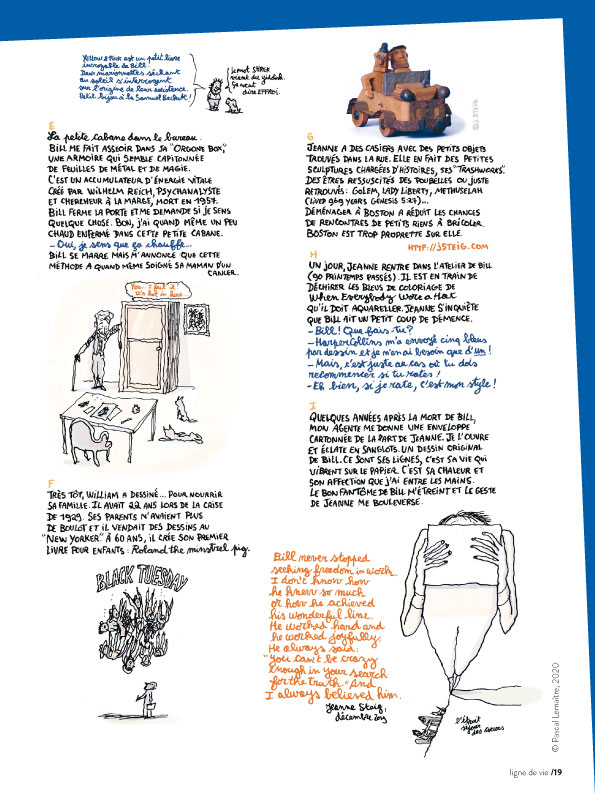 Yellow & Pink est un petit livre
incroyable de Bill!
Deux marionnettes séchant
au soleil s'interrogent
sur l'origine de leur existence.
Petit bijou à la Samuel Beckett!
Le mot SHREK
vient du yiddish.
Ça veut
dire EFFROI.
© J. STEIG
E
La petite cabane dans le bureau.
BILL ME FAIT ASSEOIR DANS SA "ORGONE BOX",
UNE ARMOIRE QUI SEMBLE CAPITONNÉE
DE FEUILLES DE MÉTAL ET DE MAGIE.
C'EST UN ACCUMULATEUR D'ÉNERGIE VITALE
CRÉÉ PAR WILHELM REICH, PSYCHANALYSTE
ET CHERCHEUR À LA MARGE, MORT EN 1957.
BILL FERME LA PORTE ET ME DEMANDE SI JE SENS
QUELQUE CHOSE. BON, J'AI QUAND MÊME UN PEU
CHAUD ENFERMÉ DANS CETTE PETITE CABANE.
- Oui, je sens que ça chauffe...
BILL SE MARRE MAIS M'ANNONCE QUE CETTE
MÉTHODE A QUAND MÊME SOIGNÉ SA MAMAN D'UN
CANCER.
You. I feel it
it's hot in here
F
TRÈS TÔT, WILLIAM A DESSINÉ... POUR NOURRIR
SA FAMILLE. IL AVAIT 22 ANS LORS DE LA CRISE
DE 1929. SES PARENTS N'AVAIENT PLUS
DE BOULOT ET IL VENDAIT DES DESSINS AU
"NEW YORKER". À 60 ANS, IL CRÉE SON PREMIER
LIVRE POUR ENFANTS : Roland the minstrel pig.
BLACK TUESDAY
G
JEANNE A DES CASIERS AVEC DES PETITS OBJETS
TROUVÉS DANS LA RUE. ELLE EN FAIT DES PETITES
SCULPTURES CHARGÉES D'HISTOIRES, SES "TRASHWORKS".
DES ÊTRES RESSUSCITÉS DES POUBELLES OU JUSTE
RETROUVÉS : GOLEM, LADY LIBERTY, METHUSELAH
(LIVED 969 YEARS GENESIS 5:27)...
DÉMÉNAGER À BOSTON A RÉDUIT LES CHANCES
DE RENCONTRES DE PETITS RIENS À BRICOLER.
BOSTON EST TROP PROPRETTE SUR ELLE.
HTTP://JSTEIG.COM
H
UN JOUR, JEANNE RENTRE DANS L'ATELIER DE BILL
(90 PRINTEMPS PASSÉS). IL EST EN TRAIN DE
DÉCHIRER LES BLEUS DE COLORIAGE DE
When Everybody Wore a Hat
QU'IL DOIT AQUARELLER. JEANNE S'INQUIÈTE
QUE BILL AIT UN PETIT COUP DE DÉMENCE.
- Bill! Que fais-tu?
- HarperCollins m'a envoyé cinq bleus
par dessin et je n'en ai besoin que d'un!
- Mais, c'est juste au cas où tu dois
recommencer si tu rates!
- Eh bien, si je rate, c'est mon style!
I
QUELQUES ANNÉES APRÈS LA MORT DE BILL,
MON AGENTE ME DONNE UNE ENVELOPPE
CARTONNÉE DE LA PART DE JEANNE. JE L'OUVRE
ET ÉCLATE EN SANGLOTS. UN DESSIN ORIGINAL
DE BILL. CE SONT SES LIGNES, C'EST SA VIE QUI
VIBRENT SUR LE PAPIER. C'EST SA CHALEUR ET
SON AFFECTION QUE J'AI ENTRE LES MAINS.
LE BON FANTÔME DE BILL M'ÉTREINT ET LE GESTE
DE JEANNE ME BOULEVERSE.
Bill never stopped
seeking freedom in work.
I don't know how
he knew so much
or how he achieved
his wonderful line.
He worked hard and
he worked joyfully.
He always said:
"You can't be crazy
enough in your search
for the truth." And
I always believed him.
Jeanne Steig,
décembre 2003
© Pascal Lemaître, 2020
ligne de vie /19